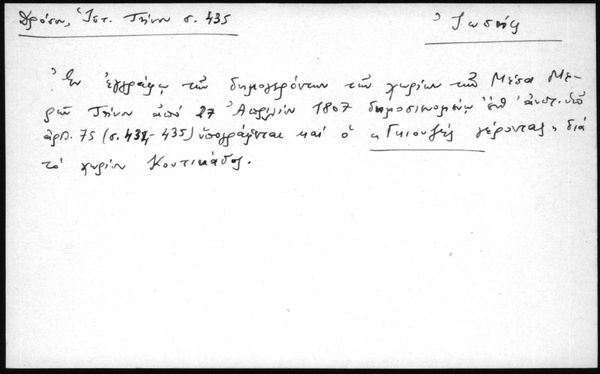 Δρόσου, Ἱστ. Τήνου σ. 435
Ἰωσήφ
Ἐν ἐγγράφῳ τῶν δημογερόντων τῶν χωρίων τῶν Μέσα Με-
ρῶν Τήνου ἀπό 27 Ἀπριλίου 1807 δημοσιευομένῳ ὑπ'
ἀρθ. 75 (σ. 434-435) ὑπογράφεται καί ὁ "Γκιουζές γέροντας" διά
τό χωρίον Κουτικάδος.